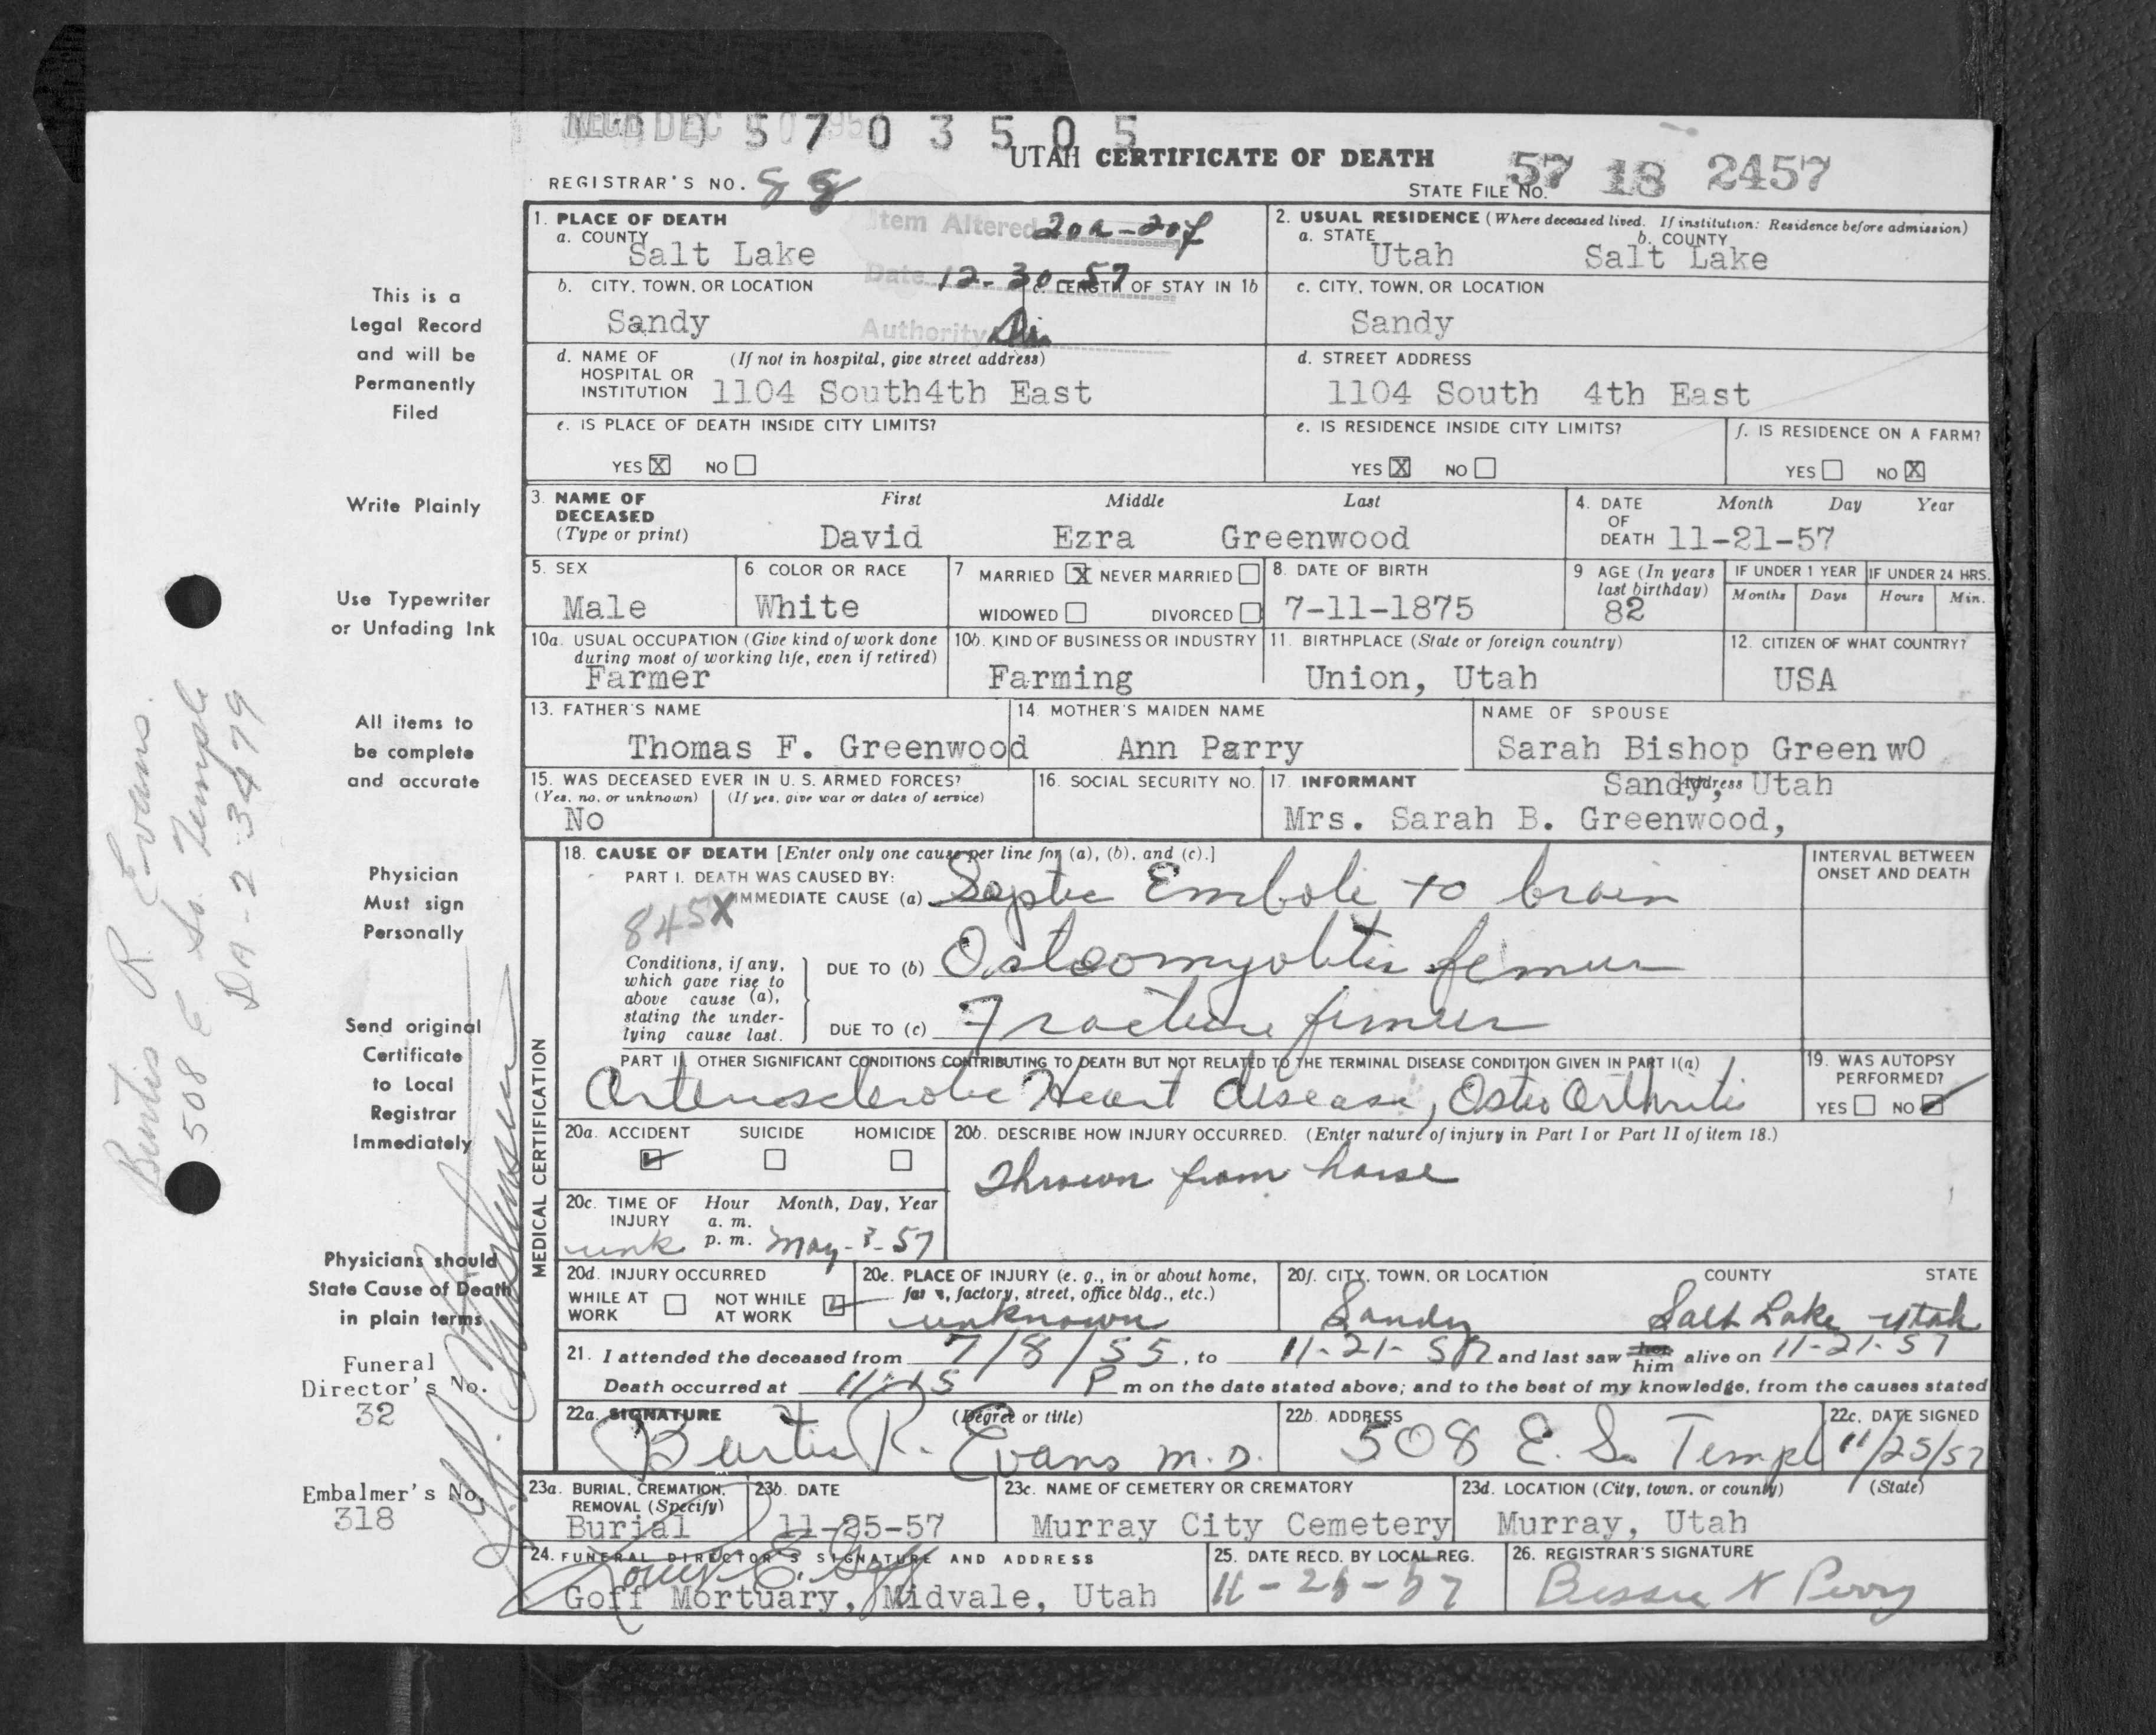 RECD DEC
5 7 0 3 5 0 5
UTAH CERTIFICATE OF DEATH
REGISTRAR'S NO. 88
STATE FILE NO. 57 18 2457
1. PLACE OF DEATH
a. COUNTY
Salt Lake
Item Altered 20a-20f
Date 12-30-57
Authority
2. USUAL RESIDENCE (Where deceased lived. If institution: Residence before admission)
a. STATE
Utah
b. COUNTY
Salt Lake
b. CITY, TOWN, OR LOCATION
Sandy
c. LENGTH OF STAY IN 1b
c. CITY, TOWN, OR LOCATION
Sandy
d. NAME OF HOSPITAL OR INSTITUTION
(If not in hospital, give street address)
1104 South4th East
d. STREET ADDRESS
1104 South 4th East
e. IS PLACE OF DEATH INSIDE CITY LIMITS?
YES X NO
e. IS RESIDENCE INSIDE CITY LIMITS?
YES X NO
f. IS RESIDENCE ON A FARM?
YES NO X
3. NAME OF DECEASED
(Type or print)
First Middle Last
David Ezra Greenwood
4. DATE OF DEATH
Month Day Year
11-21-57
5. SEX
Male
6. COLOR OR RACE
White
7 MARRIED X NEVER MARRIED
WIDOWED DIVORCED
8. DATE OF BIRTH
7-11-1875
9 AGE (In years last birthday)
82
IF UNDER 1 YEAR
Months Days
IF UNDER 24 HRS.
Hours Min.
10a. USUAL OCCUPATION (Give kind of work done during most of working life, even if retired)
Farmer
10b. KIND OF BUSINESS OR INDUSTRY
Farming
11. BIRTHPLACE (State or foreign country)
Union, Utah
12. CITIZEN OF WHAT COUNTRY?
USA
13. FATHER'S NAME
Thomas F. Greenwood
14. MOTHER'S MAIDEN NAME
Ann Parry
NAME OF SPOUSE
Sarah Bishop Green wO
15. WAS DECEASED EVER IN U. S. ARMED FORCES?
(Yes, no, or unknown) (If yes, give war or dates of service)
No
16. SOCIAL SECURITY NO.
17. INFORMANT
Address
Sandy, Utah
Mrs. Sarah B. Greenwood,
MEDICAL CERTIFICATION
18. CAUSE OF DEATH [Enter only one cause per line for (a), (b), and (c).]
INTERVAL BETWEEN ONSET AND DEATH
PART I. DEATH WAS CAUSED BY:
IMMEDIATE CAUSE (a) Septic Emboli to brain
845X
Conditions, if any, which gave rise to above cause (a), stating the underlying cause last.
DUE TO (b) Osteomyolitis femur
DUE TO (c) Fracture femur
PART II. OTHER SIGNIFICANT CONDITIONS CONTRIBUTING TO DEATH BUT NOT RELATED TO THE TERMINAL DISEASE CONDITION GIVEN IN PART I(a)
Arteriosclerotic Heart disease, Osteo Arthritis
19. WAS AUTOPSY PERFORMED?
YES NO ✓
20a. ACCIDENT SUICIDE HOMICIDE
✓
20b. DESCRIBE HOW INJURY OCCURRED. (Enter nature of injury in Part I or Part II of item 18.)
Thrown from horse
20c. TIME OF INJURY
Hour Month, Day, Year
a. m.
p. m.
unk May-3-57
20d. INJURY OCCURRED
WHILE AT WORK NOT WHILE AT WORK ✓
20e. PLACE OF INJURY (e. g., in or about home, farm, factory, street, office bldg., etc.)
unknown
20f. CITY, TOWN, OR LOCATION COUNTY STATE
Sandy Salt Lake Utah
21. I attended the deceased from 7/8/55, to 11-21-57 and last saw her him alive on 11-21-57
Death occurred at 11:15 P m on the date stated above; and to the best of my knowledge, from the causes stated
22a. SIGNATURE (Degree or title)
Burtis R. Evans M.D.
22b. ADDRESS
508 E. So. Templ
22c. DATE SIGNED
11/25/57
23a. BURIAL, CREMATION, REMOVAL (Specify)
Burial
23b. DATE
11-25-57
23c. NAME OF CEMETERY OR CREMATORY
Murray City Cemetery
23d. LOCATION (City, town, or county) (State)
Murray, Utah
24. FUNERAL DIRECTOR'S SIGNATURE AND ADDRESS
Goff
Goff Mortuary, Midvale, Utah
25. DATE RECD. BY LOCAL REG.
26. REGISTRAR'S SIGNATURE
Bessie N Perry
This is a
Legal Record
and will be
Permanently
Filed
Write Plainly
Use Typewriter
or Unfading Ink
All items to
be complete
and accurate
Physician
Must sign
Personally
Send original
Certificate
to Local
Registrar
Immediately
Physicians should
State Cause of Death
in plain terms
Funeral
Director's No.
32
Embalmer's No.
318
Burtis R Evans.
508 E So. Temple
DA-2-3479